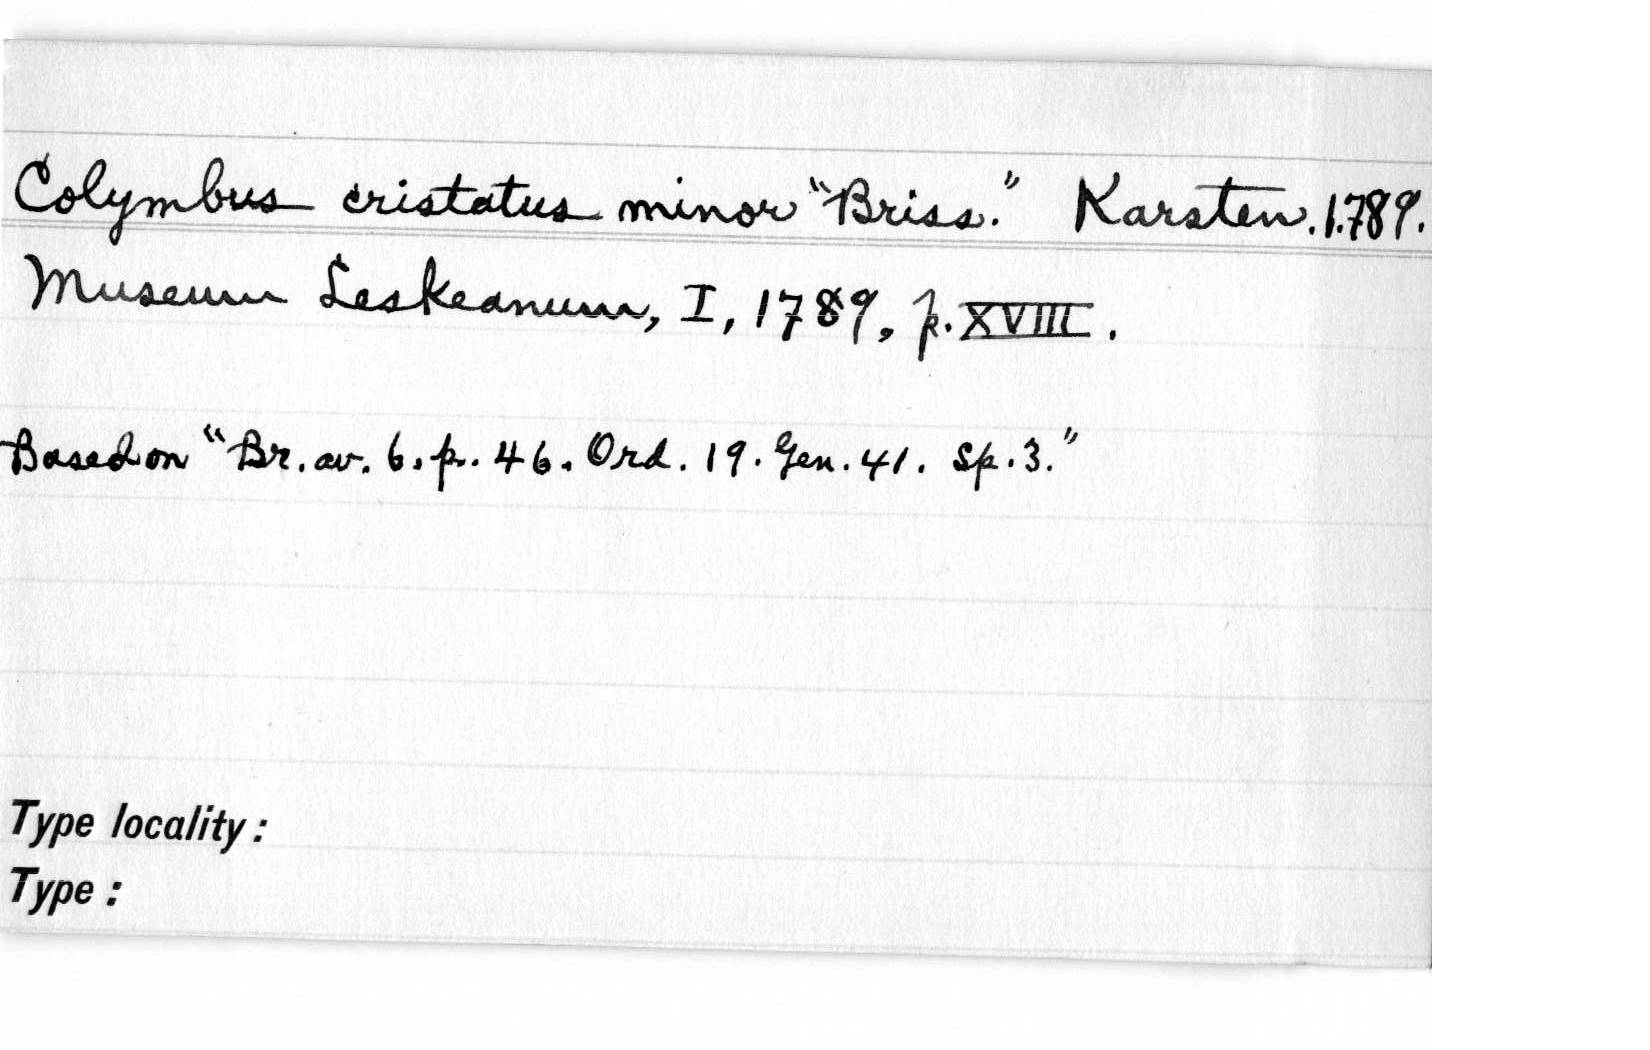 Colymbus cristatus minor "Briss." Karsten. 1789.
Museum Leskeanum, I, 1789, p. XVIII.
Based on "Br. av. 6. p. 46. Ord. 19. Gen. 41. Sp. 3."
Type locality:
Type: